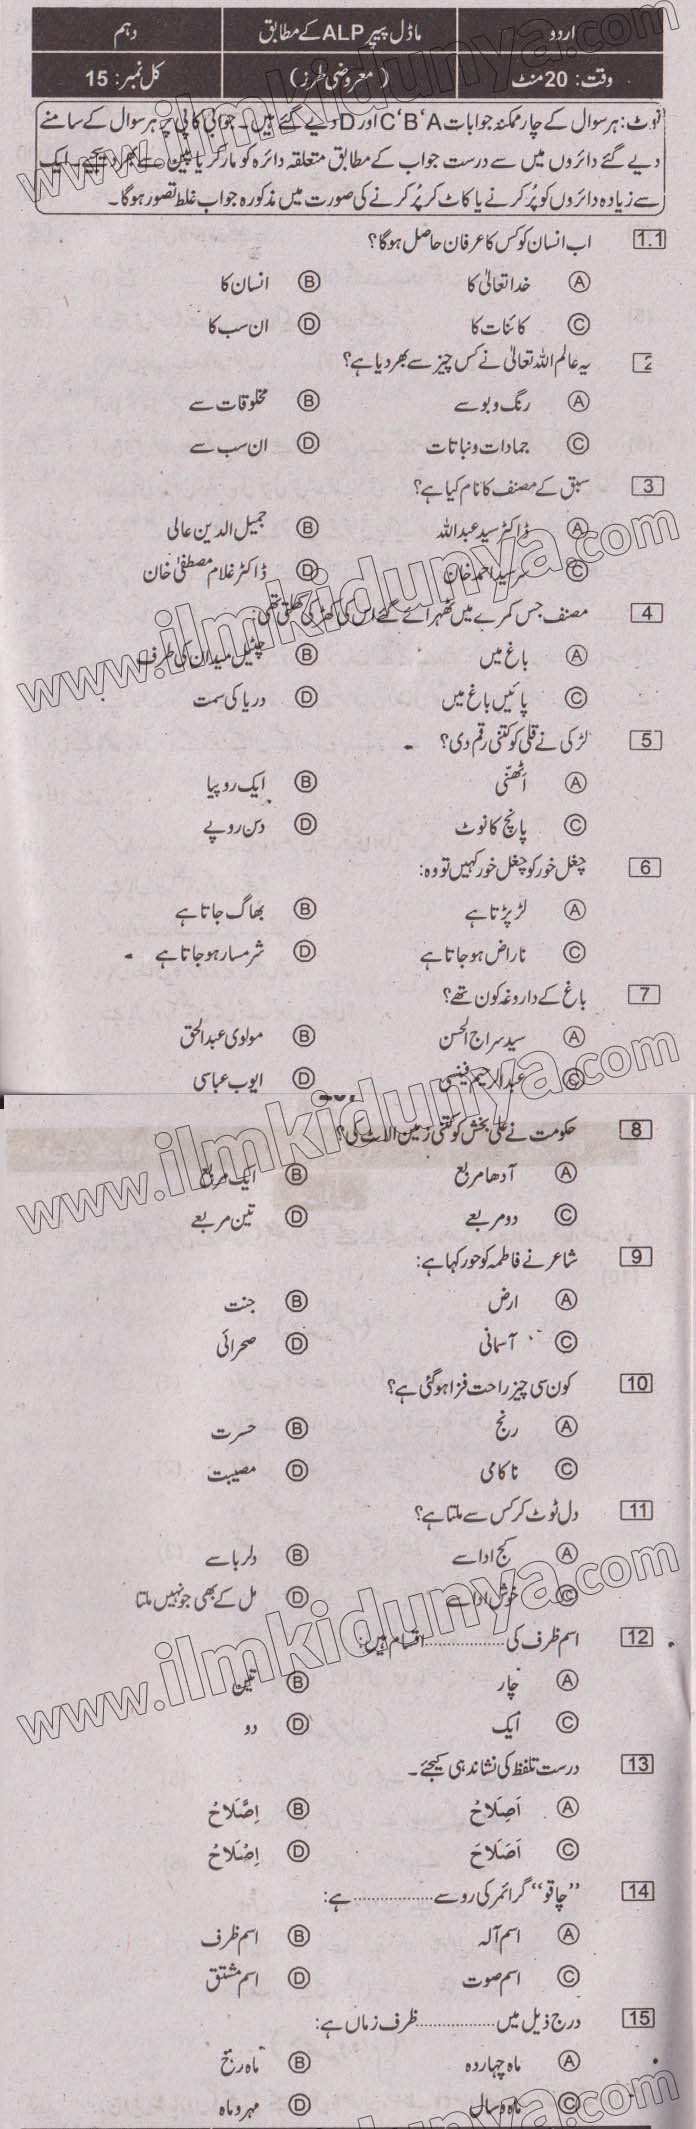 اردو ماڈل پیپر ALP کے مطابق دہم
وقت: 20 منٹ (معروضی طرز) کل نمبر: 15
نوٹ: ہر سوال کے چار ممکنہ جوابات A‘B‘C اور D دیے گئے ہیں۔ جوابی کاپی پر ہر سوال کے سامنے
دیے گئے دائروں میں سے درست جواب کے مطابق متعلقہ دائرہ کو مارکر یا پین سے بھر دیجیے۔ ایک
سے زیادہ دائروں کو پُر کرنے یا کاٹ کر پُر کرنے کی صورت میں مذکورہ جواب غلط تصور ہوگا۔
1.1 اب انسان کو کس کا عرفان حاصل ہوگا؟
A خدا تعالیٰ کا B انسان کا
C کائنات کا D ان سب کا
2 یہ عالم اللہ تعالیٰ نے کس چیز سے بھر دیا ہے؟
A رنگ و بو سے B مخلوقات سے
C جمادات و نباتات D ان سب سے
3 سبق کے مصنف کا نام کیا ہے؟
A ڈاکٹر سید عبداللہ B جمیل الدین عالی
C سرسید احمد خان D ڈاکٹر غلام مصطفیٰ خان
4 مصنف جس کمرے میں ٹھہرائے گئے اس کی کھڑکی کھلتی تھی:
A باغ میں B چٹیل میدان کی طرف
C پائیں باغ میں D دریا کی سمت
5 لڑکی نے قلی کو کتنی رقم دی؟
A اٹھنّی B ایک روپیا
C پانچ کا نوٹ D دس روپے
6 چغل خور کو چغل خور کہیں تو وہ:
A لڑ پڑتا ہے B بھاگ جاتا ہے
C ناراض ہو جاتا ہے D شرمسار ہو جاتا ہے
7 باغ کے داروغہ کون تھے؟
A سید سراج الحسن B مولوی عبدالحق
C عبدالرحیم فینسی D ایوب عباسی
8 حکومت نے علی بخش کو کتنی زمین الاٹ کی؟
A آدھا مربع B ایک مربع
C دو مربعے D تین مربعے
9 شاعر نے فاطمہ کو حور کہا ہے:
A ارض B جنت
C آسمانی D صحرائی
10 کون سی چیز راحت فزا ہو گئی ہے؟
A رنج B حسرت
C ناکامی D مصیبت
11 دل ٹوٹ کر کس سے ملتا ہے؟
A کج ادا سے B دلربا سے
C خوش ادا سے D مل کے بھی جو نہیں ملتا
12 اسم ظرف کی .................. اقسام ہیں:
A چار B تین
C ایک D دو
13 درست تلفظ کی نشاندہی کیجئے۔
A اَصِلاحُ B اِصَّلاحُ
C اَصَلاحَ D اِصْلاحُ
14 ”چاقو“ گرائمر کی رو سے .................. ہے:
A اسم آلہ B اسم ظرف
C اسم صوت D اسم مشتق
15 درج ذیل میں .................. ظرف زماں ہے:
A ماہ چہاردہ B ماہ رخ
C ماہ و سال D مہر و ماہ
www.ilmkidunya.com
www.ilmkidunya.com
www.ilmkidunya.com
www.ilmkidunya.com